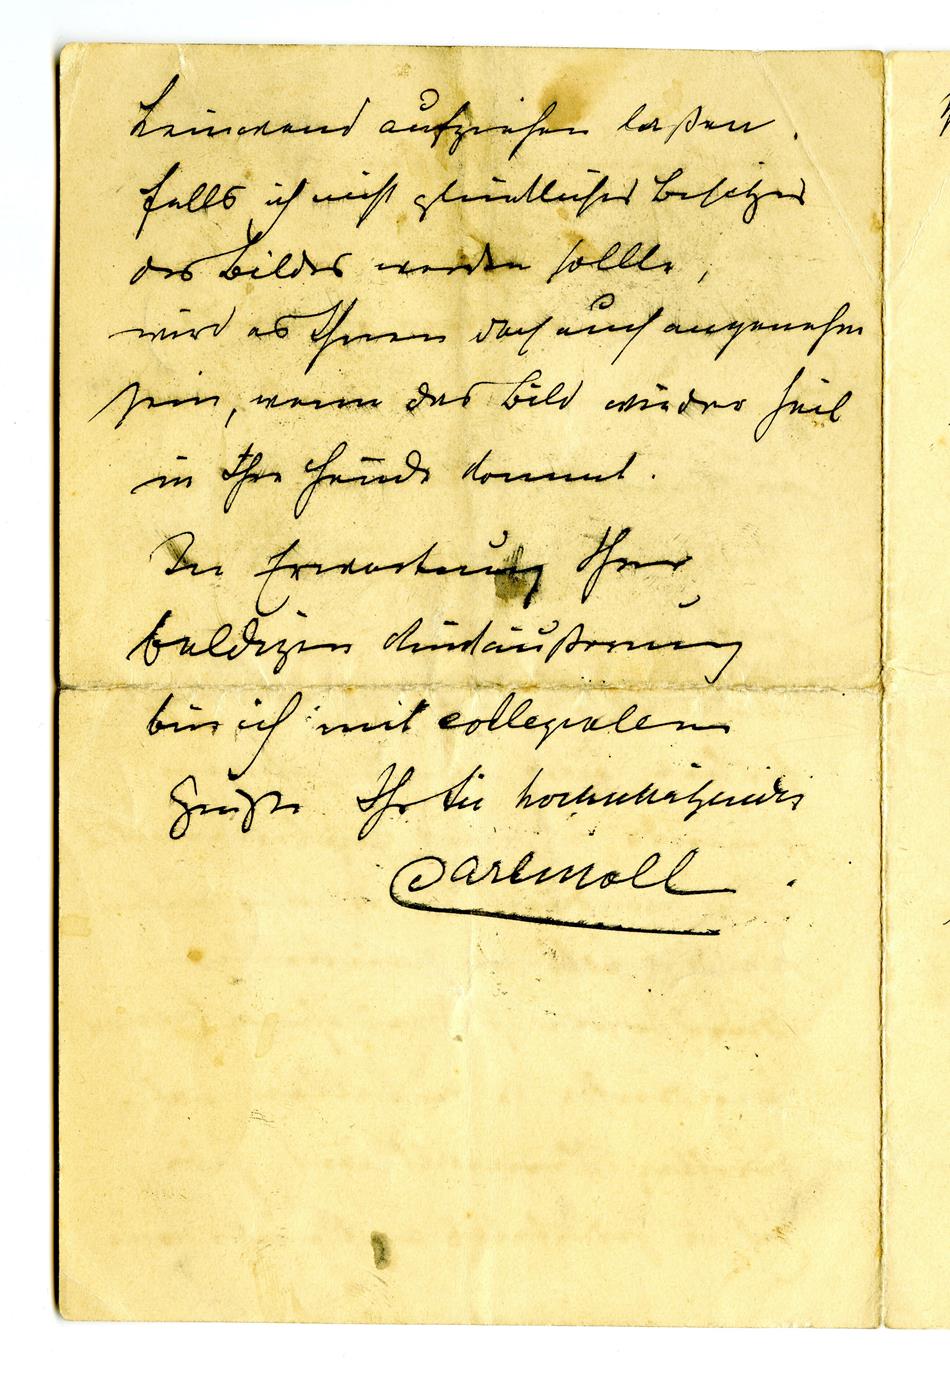 Leinwand aufziehen laßen.
Falls ich nicht glücklicher Besitzer
des Bildes werden sollte,
wird es Ihnen doch auch angenehm
sein, wenn das Bild wieder heil
in Ihre Hände kommt.
In Erwartung Ihrer
baldigen Rückäußerung
bin ich mit collegialem
Gruße Ihr Sie hochschätzender
Carl Moll.